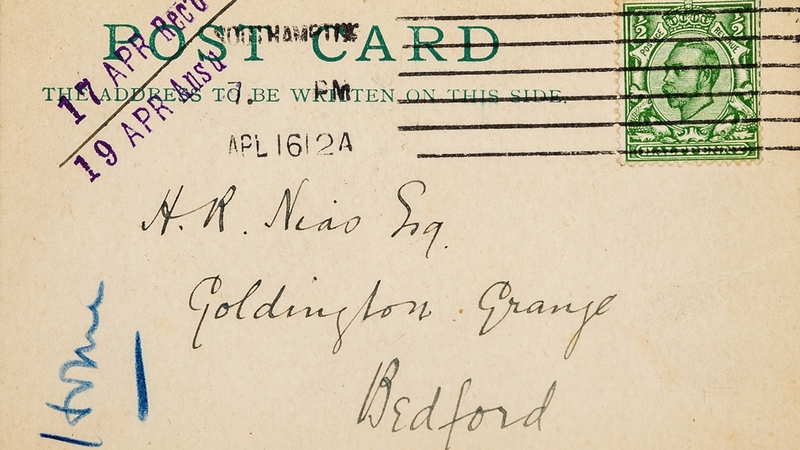 POST CARD
SOUTHAMPTON
THE ADDRESS TO BE WRITTEN ON THIS SIDE.
7. PM
APL 16 12A
17 APR Recd
19 APR Ansd
½ ½
POSTAGE REVENUE
HALFPENNY
H. R. Niao Esq.
Goldington Grange
Bedford
Home